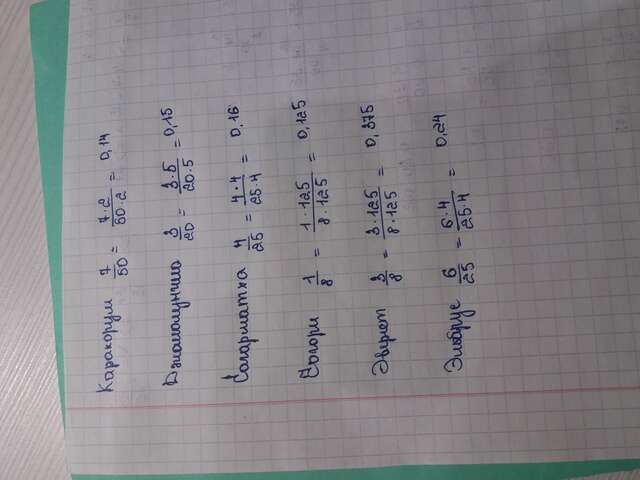 Каракорум 7/50 = 7·2/50·2 = 0,14
Джомолунгма 3/20 = 3·5/20·5 = 0,15
Сагарматха 4/25 = 4·4/25·4 = 0,16
Чогори 1/8 = 1·125/8·125 = 0,125
Эверест 3/8 = 3·125/8·125 = 0,375
Эльбрус 6/25 = 6·4/25·4 = 0,24